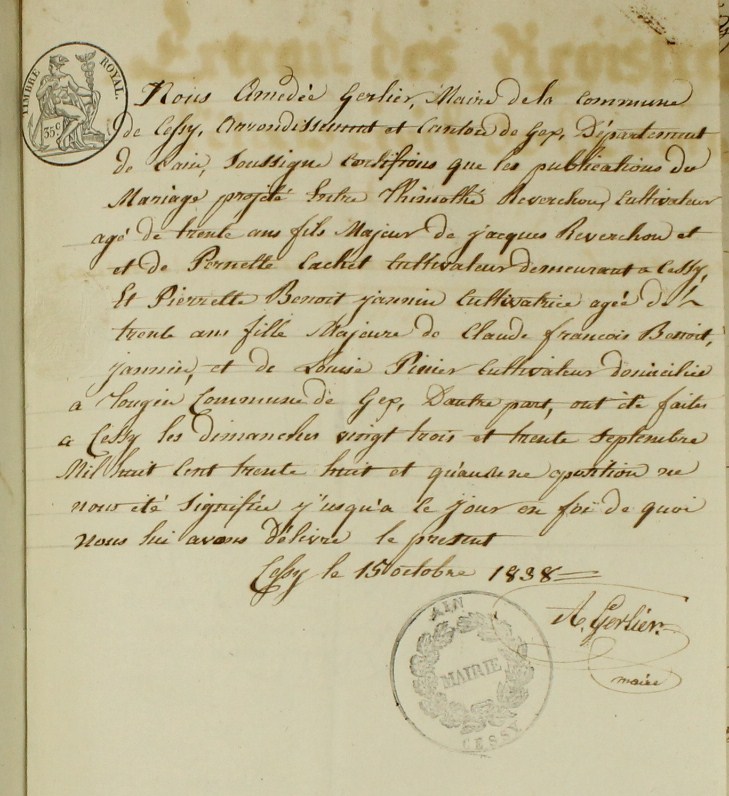 TIMBRE ROYAL.
35c
Nous Amedée Gerlier, Maire de la Commune
de Cessy, Arrondissement et Canton de Gex, Département
de L'ain, Soussigne Certifions que les publications du
Mariage projeté Entre Thimothé Reverchon, Cultivateur
agé de trente ans fils Majeur de jacques Reverchon et
et de Pernette Cachet Cultivateur demeurant a Cessy,
Et Pierrette Benoit jannin Cultivatrice agée de
trente ans fille Majeure de Claude françois Benoit,
jannin, et de Louise Pinier Cultivateur domiciliée
a Tougin Commune de Gex, D'autre part, ont été faites
a Cessy les dimanches vingt trois et trente Septembre
Mil huit Cent trente huit et qu'aucune opposition ne
nous été Signifiée j'usqu'a le jour en foi de quoi
nous lui avons Délivré le present
Cessy le 15 octobre 1838
A. Gerlier.
maire
AIN
MAIRIE
CESSY